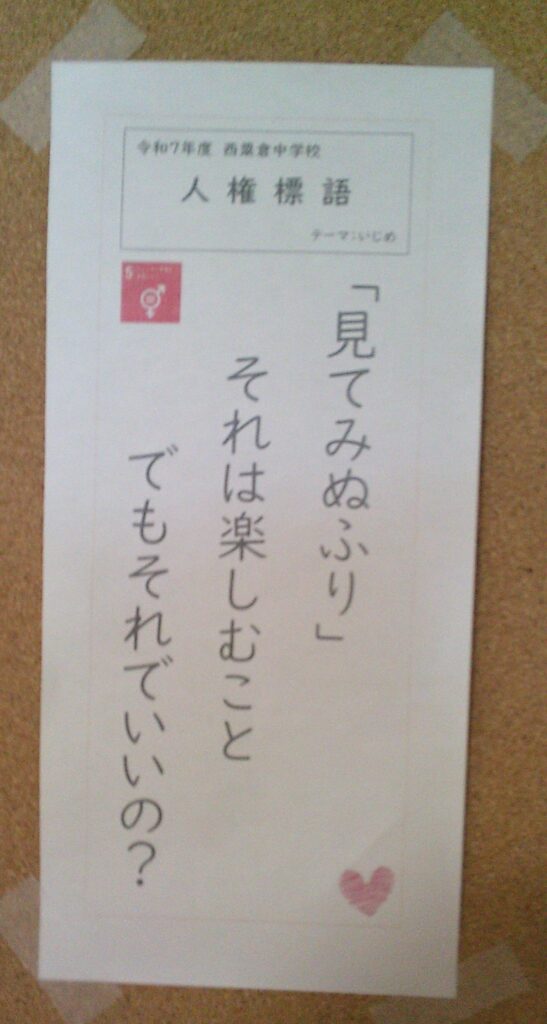 令和7年度 西粟倉中学校
人権標語
テーマ:いじめ
5
「見てみぬふり」
それは楽しむこと
でもそれでいいの?